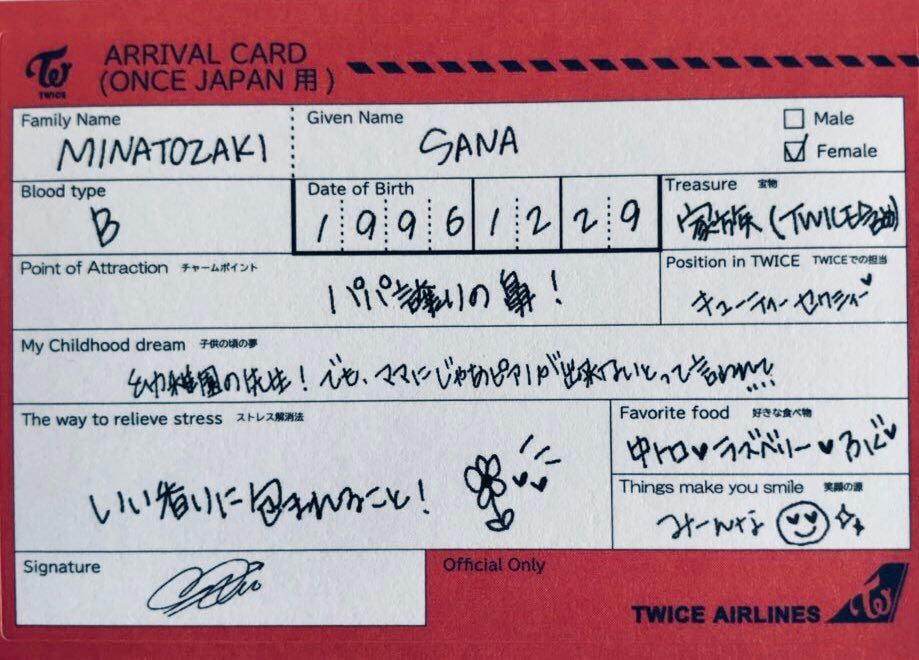 TWICE
ARRIVAL CARD
(ONCE JAPAN 用)
Family Name
MINATOZAKI
Given Name
SANA
Male
Female
Blood type
B
Date of Birth
1 9 9 6 1 2 2 9
Treasure 宝物
家族 (TWICE含め)
Point of Attraction チャームポイント
パパ譲りの鼻!
Position in TWICE TWICEでの担当
キューティーセクシィー
My Childhood dream 子供の頃の夢
幼稚園の先生!でも、ママにじゃあピアノが出来ないとって言われて
The way to relieve stress ストレス解消法
いい香りに包まれること!
Favorite food 好きな食べ物
中トロ♥ラズベリー♥えび♥
Things make you smile 笑顔の源
みーんな
Signature
Official Only
TWICE AIRLINES